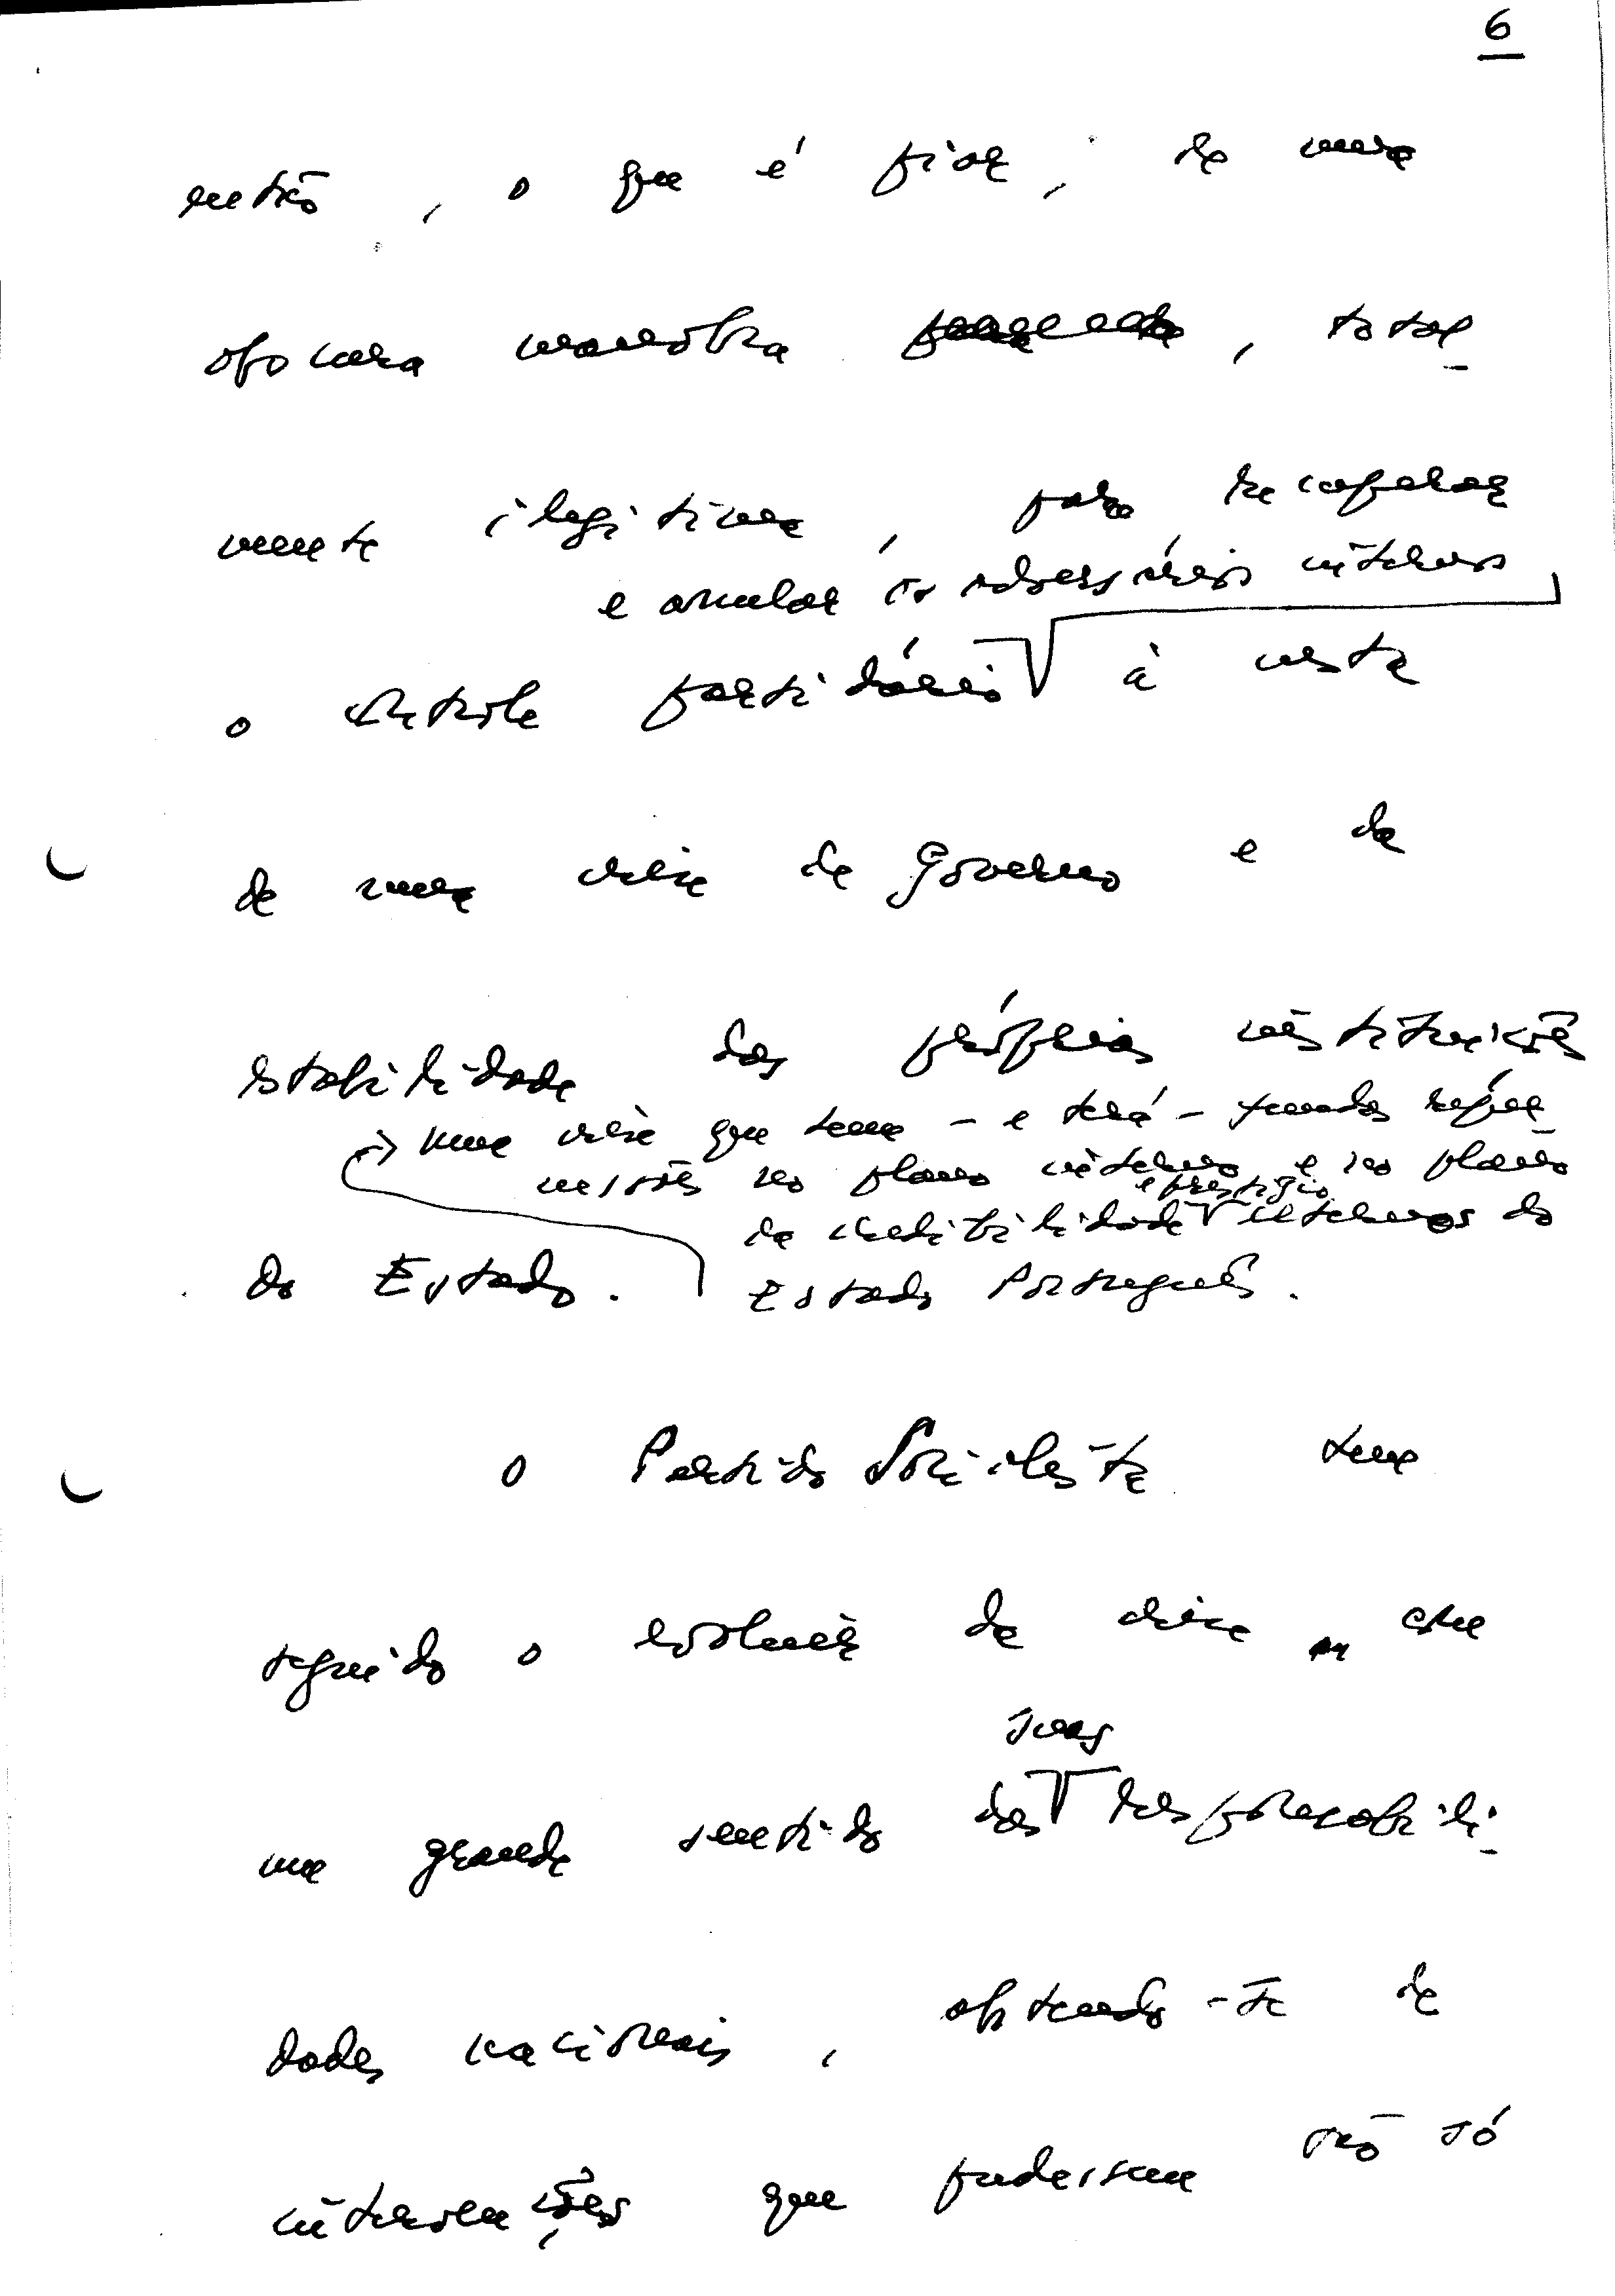 6
então, o que é pior, de uma
obscura manobra, total-
mente ilegítima, para recuperar
e anular os adversários internos
o controle partidário à custa
de uma crise de Governo e da
estabilidade das próprias instituições
uma crise que teve - e terá - fundas repér
cussões no plano interno e no plano
e prestígio
da credibilidade externos do
do Estado. Estado Português.
O Partido Socialista tem
seguido o evoluir da crise com
um grande sentido das responsabili-
suas
dades nacionais, abstendo-se de
intervenções que pudessem não só